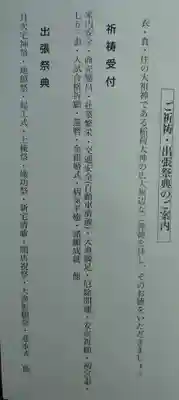 ご祈祷・出張祭典のご案内
衣・食・住の大祖神である稲荷大神の広大無辺なご神徳を拝し、そのお徳をいただきましょう
祈祷受付
家内安全・商売繁昌・社業繁栄・交通安全(自動車清祓)・心願満足・厄除開運・安産祈願・初宮詣・
七五三詣・入試合格祈願・還暦・金銀婚式・病気平癒・諸願成就 他
出張祭典
月次宅神祭・地鎮祭・起工式・上棟祭・竣功祭・新宅清祓・開店祝祭・